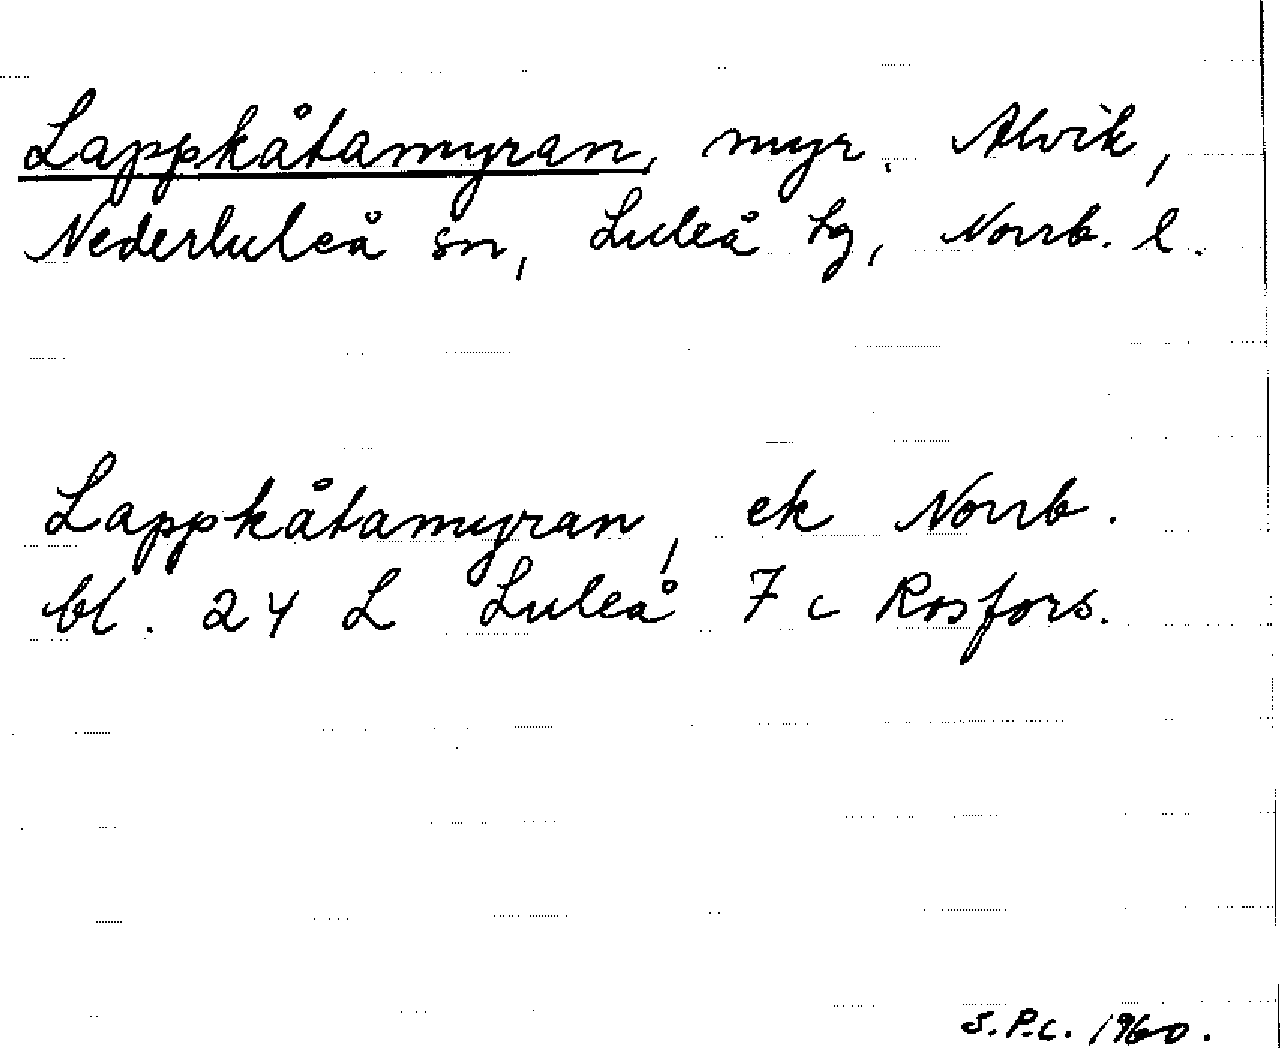 Lappkåtamyran, myr. Alvik,
Nederluleå sn, Luleå tg, Norrb. l.
Lappkåtamyran, ek Norrb.
bl. 24 L Luleå 7 c Rosfors.
S.P.C. 1960.